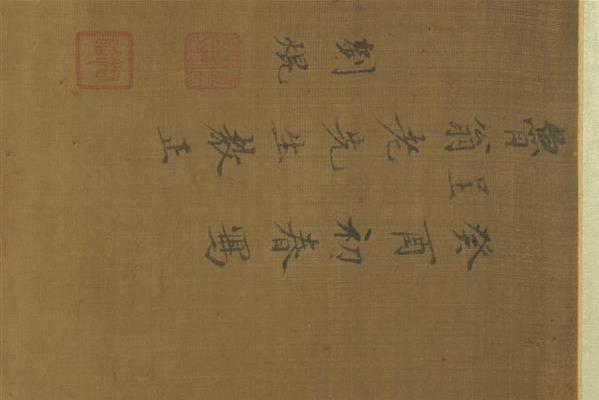 癸酉初春寫
呈
魯翁老先生教正
劉